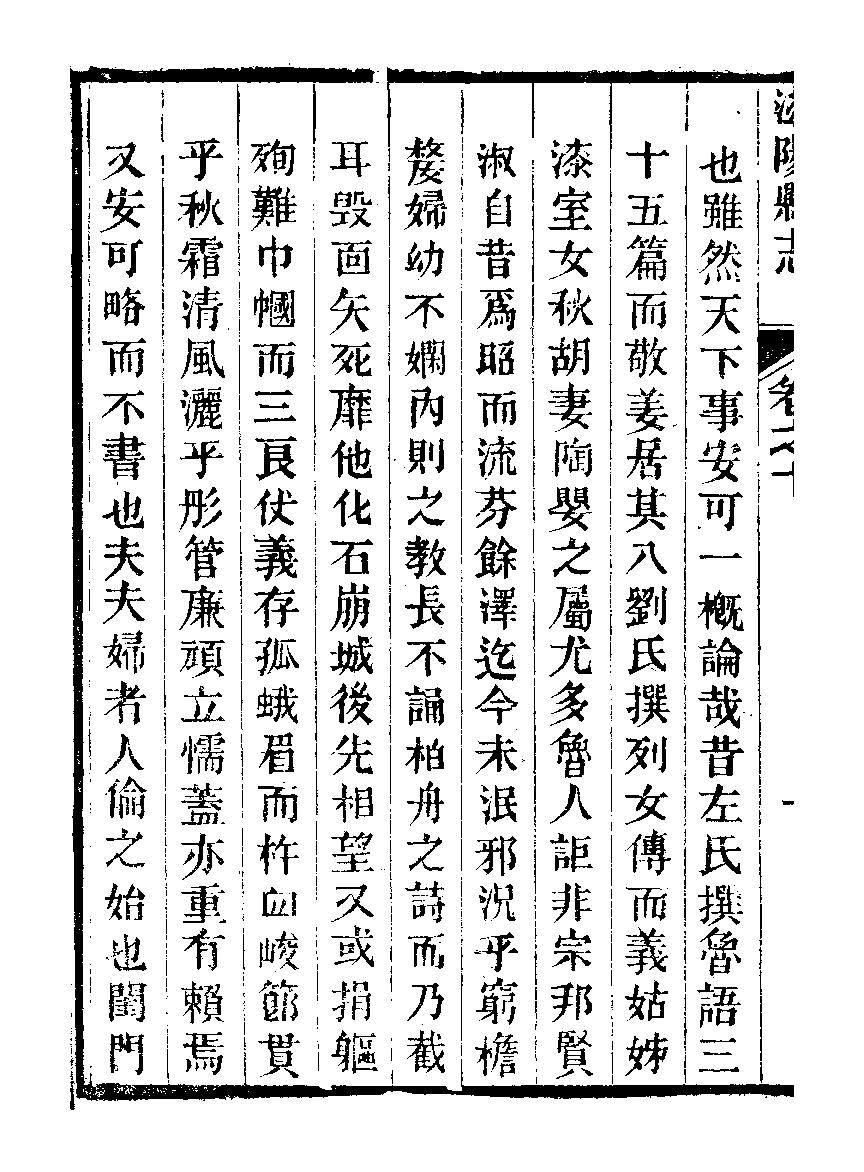 陽縣志 卷之十 一
也雖然天下事安可一概論哉昔左氏撰魯語三
十五篇而敬姜居其八劉氏撰列女傳而義姑姊
漆室女秋胡妻陶嬰之屬尤多魯人詎非宗邦賢
淑自昔爲昭而流芬餘澤迄今未泯邪況乎窮檐
嫠婦幼不嫻內則之教長不誦柏舟之詩而乃截
耳毁面矢死靡他化石崩城後先相望又或捐軀
殉難巾幗而三良仗義存孤蛾眉而杵臼峻節貫
乎秋霜清風灑乎彤管廉頑立懦蓋亦重有賴焉
又安可略而不書也夫夫婦者人倫之始也閨門